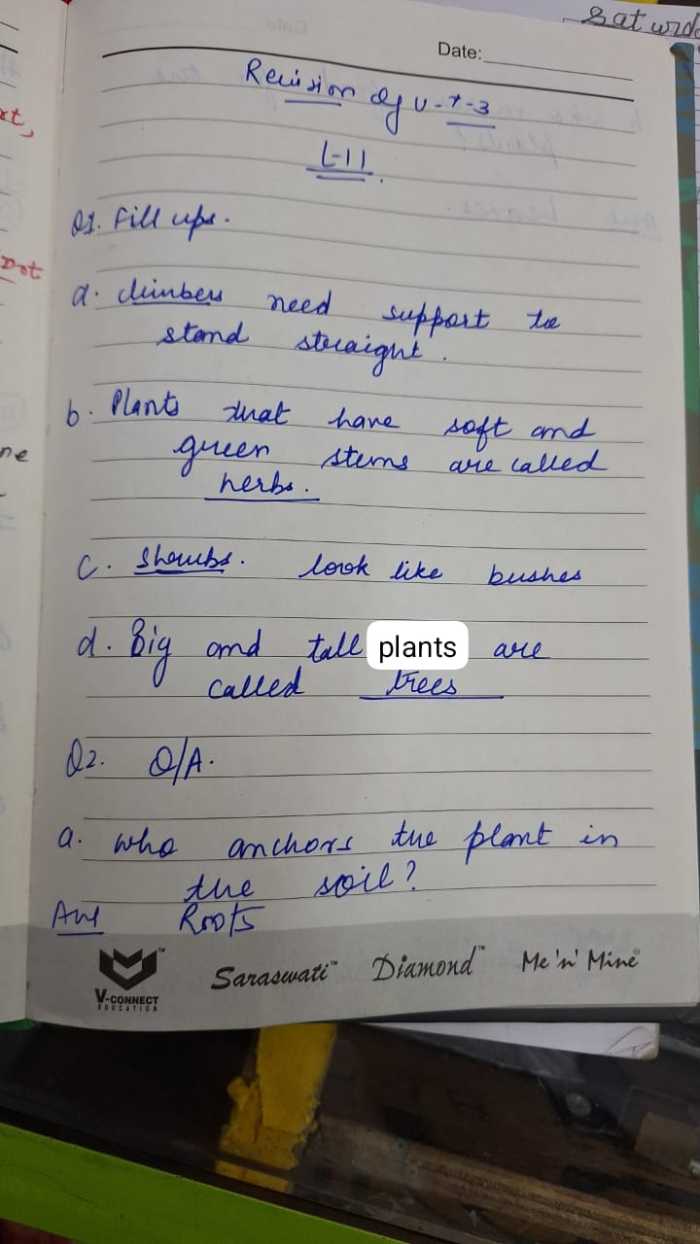 Saturd
Date:
Revision of U-T-3
L-11
Q1. Fill ups.
a. climbers need support to
stand straight.
b. Plants that have soft and
green stems are called
herbs.
c. Shrubs. look like bushes
d. Big and tall plants are
called trees
Q2. Q/A.
a. who anchors the plant in
the soil?
Ans Roots
V-CONNECT
EDUCATION
Saraswati™ Diamond™ Me 'n' Mine®